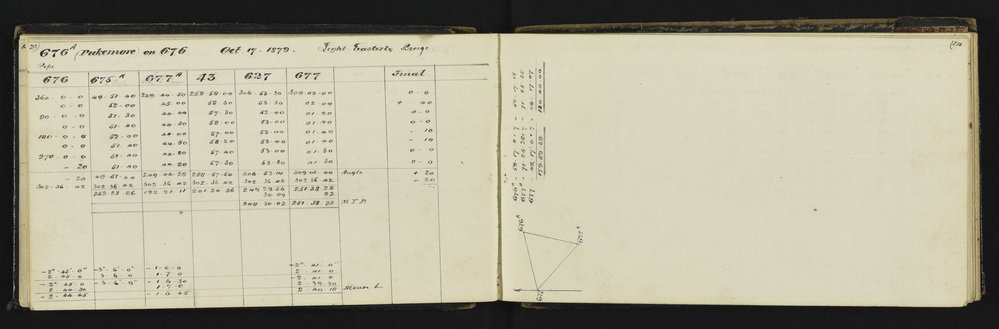 676ᴬ (Pukemore on 676 Oct 17-1879- Light Easterly Breeze
676 675ᴬ 677ᴬ 43 627 677 Final
360-0-0 49-51-40 249-44-50 258-58-00 306-53-30 309-02-00 0-0
0-0 52-00 45-00 58-30 53-30 02-00 + 40
90-0-0 51-30 44-00 57-30 52-40 01-20 0-0
0-0 51-40 44-30 58-00 53-00 01-40 - 10
180-0-0 52-00 44-00 57-40 53-00 01-40 - 10
0-0 51-40 44-50 58-20 53-40 01-40 0-0
270-0-0 51-40 44-20 57-40 53-00 01-30
- 20 51-40 44-20 57-30 53-30 01-30 0-0
- 20 49-51-44 249-44-29 258-57-54 306-53-14 309-01-40 Angle + 20
302-36-42 302-36-42 302-36-42 302-36-42 302-36-42 302-36-42 - 20
352-28-26 192-21-11 201-34-36 249-29-56 251-38-22
30-09 22
249-30-02 251-38-22 M.T.P.
-2°-45'-0" -3°-6'-0" -1-6-0 -2°-41'-0"
2-45-0 3-6-0 1-7-0 2-41-0
-2-45-0 -3-6-0 -1-6-30 -2-41-0
2-44-30 1-7-0 2-39-30
-2-44-45 -1-6-45 2-40-15 Mean L
676ᴬ - 59-17-11-7 - 59-17-18
677ᴬ - 71-25-28-7 - 71-25-35
677 49-17-01-7 - 49-17-07
179-59-39 180-00-00
676ᴬ
677ᴬ
677